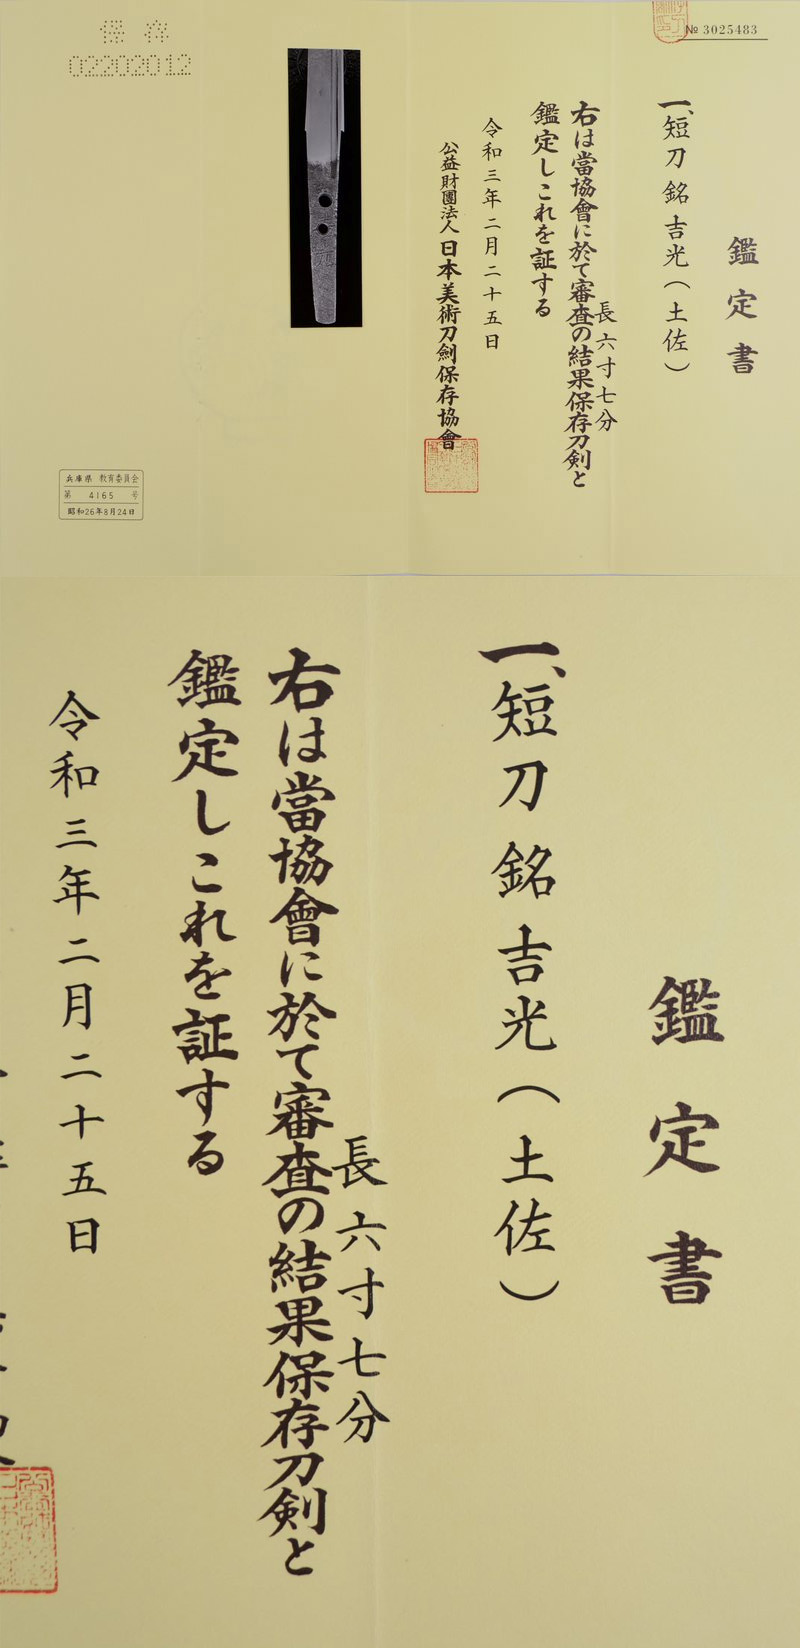 № 3025483
鑑定書
一、短刀 銘 吉光(土佐)
長 六寸七分
右は當協會に於て審査の結果保存刀剣と
鑑定しこれを証する
令和三年二月二十五日
公益財團法人 日本美術刀劍保存協會
保存
02202012
兵庫県 教育委員会
第 4165 号
昭和26年8月24日
鑑定書
一、短刀 銘 吉光(土佐)
長 六寸七分
右は當協會に於て審査の結果保存刀剣と
鑑定しこれを証する
令和三年二月二十五日